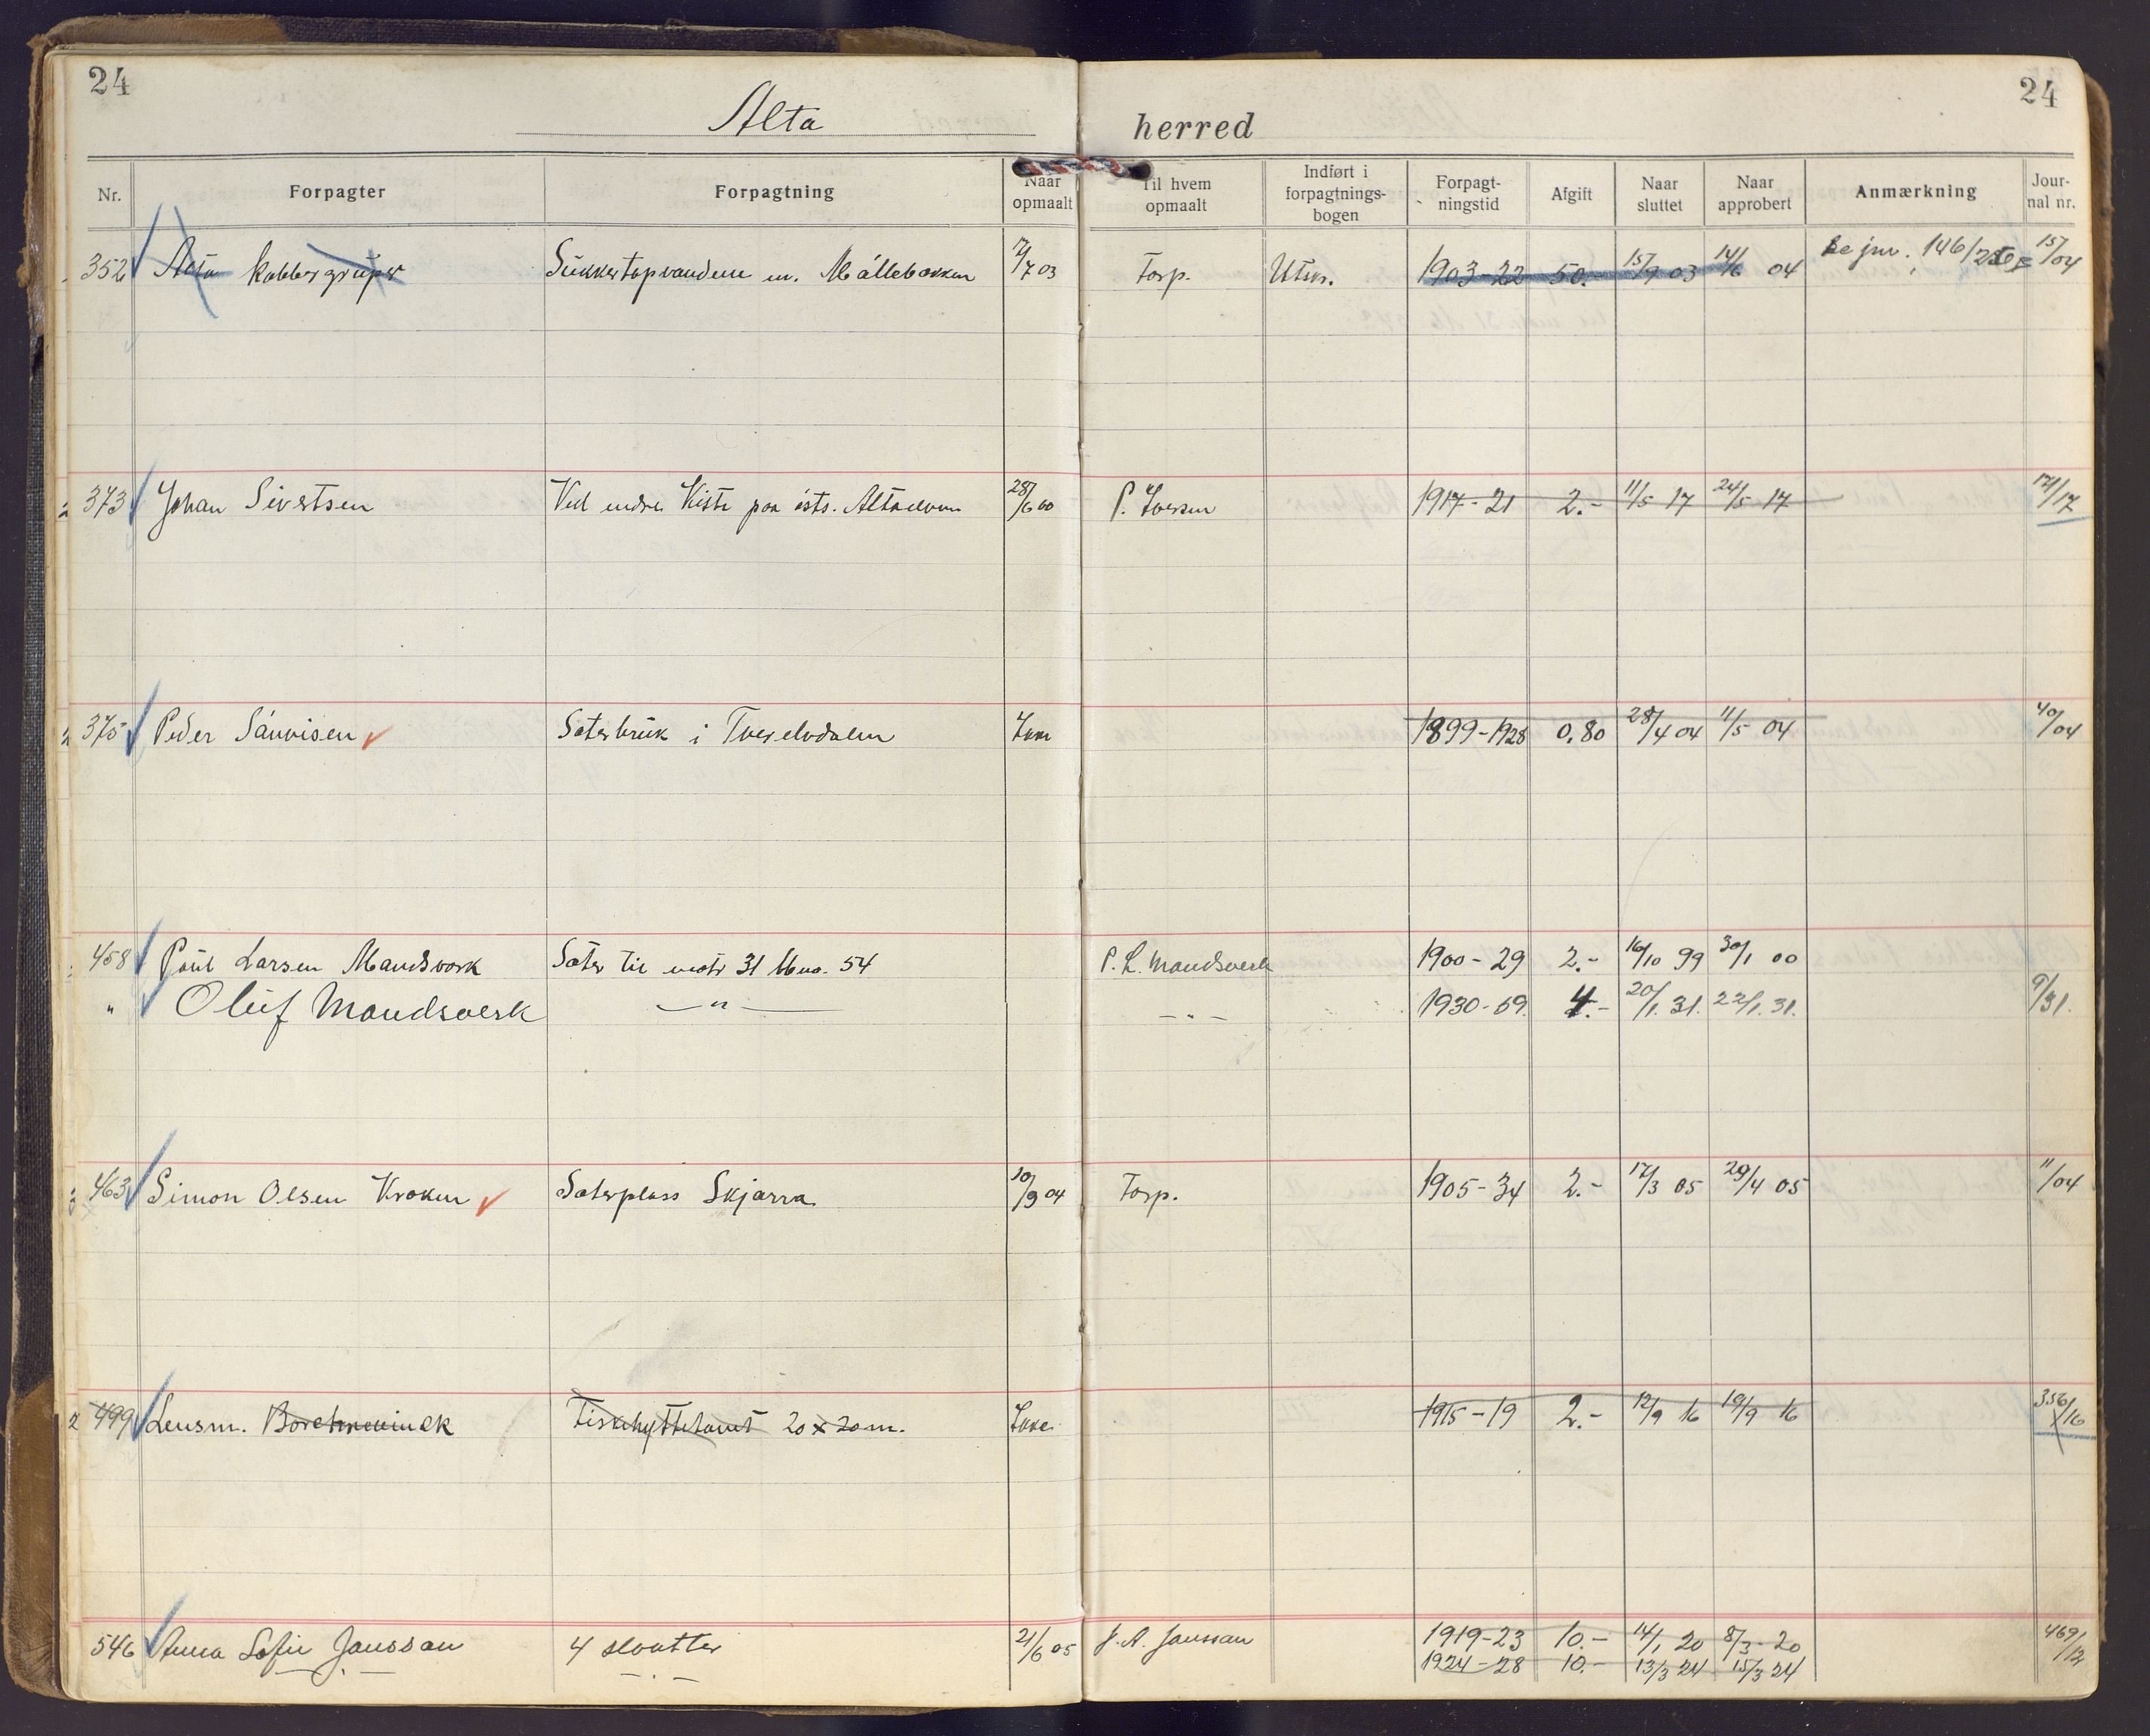 24
24
Alta herred
Nr. Forpagter Forpagtning Naar opmaalt Til hvem opmaalt Indført i forpagtnings-bogen Forpagt-ningstid Afgift Naar sluttet Naar approbert Anmærkning Jour-nal nr.
352 Alta Kobbergruper Sukkertopvandene m. 7/7 03 Forp. Utsn. 1903-22 50.- 15/9 03 14/6 04 157/04
373 Johan Sivertsen Ved indre Kista paa østs. Altaelven 28/6 00 P. Iversen 1917-21 2.- 11/5 17 24/5 17 /17
375 Peder Sáuvisen Sæterbruk i Tverelvdalen Ikke 1899-1928 0.80 28/4 04 11/5 04 40/04
458 Poul Larsen Mandsverk Sæter til matr 31 lbno. 54 P. L. Mandsverk 1900-29 2.- 16/10 99 30/1 00
" Oluf Mandsverk —"— -"- 1930-69. 4.- 20/1. 31. 22/1. 31. 9/31.
463 Simon Olsen Kroken Sæterplass Skjarra 10/9 04 Forp. 1905-34 2.- 17/3 05 29/4 05 11/04
499 Lensm. Borchrevinck Fiskehyttetomt 20 x 20 m. Ikke 1915-19 2.- 12/9 16 19/9 16 356/16
546 Anna Sofie Janssan 4 slaatter 21/6 05 J. A. Janssan 1919-23 10.- 14/1 20 8/3-20 469/12
1924-28 10.- 13/3 24 15/3 24